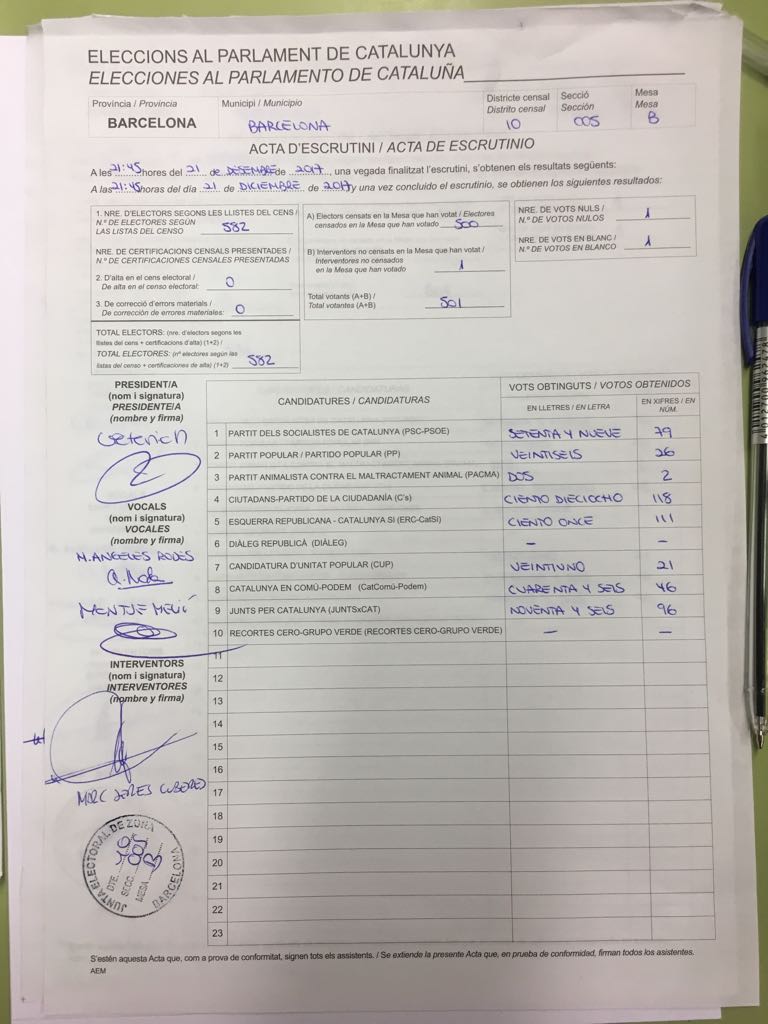 ELECCIONS AL PARLAMENT DE CATALUNYA
ELECCIONES AL PARLAMENTO DE CATALUÑA
Provincia / Provincia
BARCELONA
Municipi / Municipio
BARCELONA
Districte censal
Distrito censal
10
Secció
Sección
005
Mesa
Mesa
B
ACTA D'ESCRUTINI / ACTA DE ESCRUTINIO
A les 21:45 hores del 21 de DESEMBRE de 2017, una vegada finalitzat l'escrutini, s'obtenen els resultats següents:
A las 21:45 horas del día 21 de DICIEMBRE de 2017 y una vez concluido el escrutinio, se obtienen los siguientes resultados:
1. NRE. D'ELECTORS SEGONS LES LLISTES DEL CENS /
N.º DE ELECTORES SEGÚN
LAS LISTAS DEL CENSO 582
NRE. DE CERTIFICACIONS CENSALS PRESENTADES /
N.º DE CERTIFICACIONES CENSALES PRESENTADAS
2. D'alta en el cens electoral /
De alta en el censo electoral: 0
3. De correcció d'errors materials /
De corrección de errores materiales: 0
TOTAL ELECTORS: (nre. d'electors segons les
llistes del cens + certificacions d'alta) (1+2) /
TOTAL ELECTORES: (nº electores según las
listas del censo + certificaciones de alta) (1+2) 582
A) Electors censats en la Mesa que han votat / Electores
censados en la Mesa que han votado 500
B) Interventors no censats en la Mesa que han votat /
Interventores no censados
en la Mesa que han votado 1
Total votants (A+B) /
Total votantes (A+B) 501
NRE. DE VOTS NULS /
N.º DE VOTOS NULOS 1
NRE. DE VOTS EN BLANC /
N.º DE VOTOS EN BLANCO 1
PRESIDENT/A
(nom i signatura)
PRESIDENTE/A
(nombre y firma)
VOCALS
(nom i signatura)
VOCALES
(nombre y firma)
M. ANGELES RODES
INTERVENTORS
(nom i signatura)
INTERVENTORES
(nombre y firma)
JUNTA ELECTORAL DE ZONA
BARCELONA
DTE. 10
SECC. 005
MESA B
CANDIDATURES / CANDIDATURAS
VOTS OBTINGUTS / VOTOS OBTENIDOS
EN LLETRES / EN LETRA
EN XIFRES / EN NÚM.
1 PARTIT DELS SOCIALISTES DE CATALUNYA (PSC-PSOE) SETENTA Y NUEVE 79
2 PARTIT POPULAR / PARTIDO POPULAR (PP) VEINTISEIS 26
3 PARTIT ANIMALISTA CONTRA EL MALTRACTAMENT ANIMAL (PACMA) DOS 2
4 CIUTADANS-PARTIDO DE LA CIUDADANÍA (C's) CIENTO DIECIOCHO 118
5 ESQUERRA REPUBLICANA - CATALUNYA SÍ (ERC-CatSí) CIENTO ONCE 111
6 DIÀLEG REPUBLICÀ (DIÀLEG) – –
7 CANDIDATURA D'UNITAT POPULAR (CUP) VEINTIUNO 21
8 CATALUNYA EN COMÚ-PODEM (CatComú-Podem) CUARENTA Y SEIS 46
9 JUNTS PER CATALUNYA (JUNTSxCAT) NOVENTA Y SEIS 96
10 RECORTES CERO-GRUPO VERDE (RECORTES CERO-GRUPO VERDE) – –
11
12
13
14
15
16
17
18
19
20
21
22
23
S'estén aquesta Acta que, com a prova de conformitat, signen tots els assistents. / Se extiende la presente Acta que, en prueba de conformidad, firman todos los asistentes.
AEM